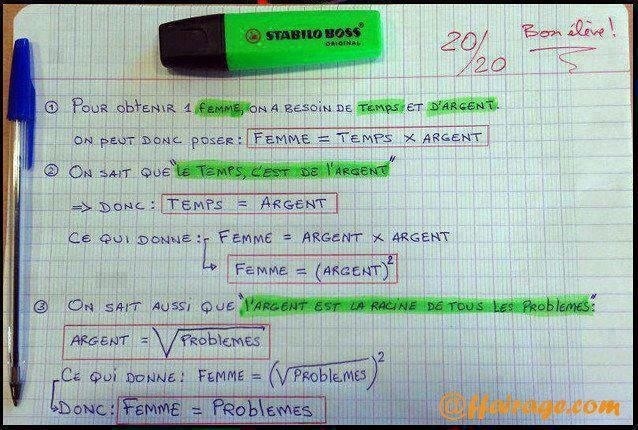 STABILO BOSS
ORIGINAL
20/20
Bon élève!
① POUR OBTENIR 1 FEMME, ON A BESOIN DE TEMPS ET D'ARGENT.
ON PEUT DONC POSER: FEMME = TEMPS X ARGENT
② ON SAIT QUE "LE TEMPS, C'EST DE L'ARGENT"
=> DONC: TEMPS = ARGENT
CE QUI DONNE: FEMME = ARGENT X ARGENT
FEMME = (ARGENT)²
③ ON SAIT AUSSI QUE "L'ARGENT EST LA RACINE DE TOUS LES PROBLEMES":
ARGENT = √PROBLEMES
CE QUI DONNE: FEMME = (√PROBLEMES)²
DONC: FEMME = PROBLEMES
@ffairage.com